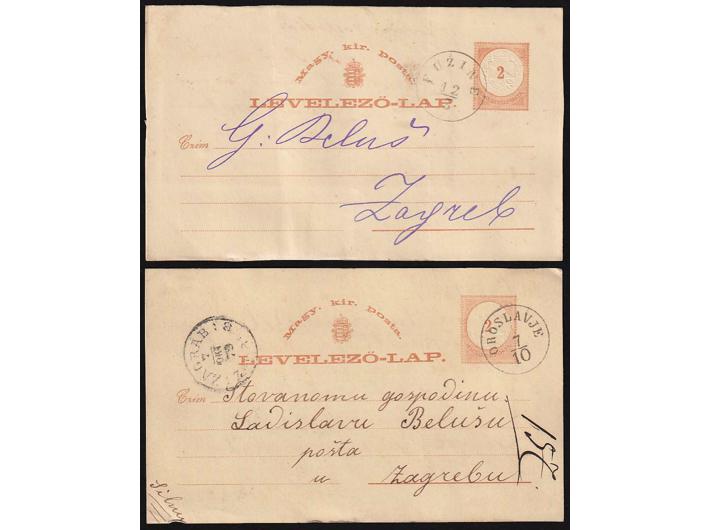 Magy. kir. posta.
2
FUŽINE
12
3
LEVELEZŐ-LAP.
Czim
G. Beluš
Zagreb
Magy. kir. posta.
2
OROSLAVJE
7/10
ZAGRAB
LEVELEZŐ-LAP.
Czim
Štovanomu gospodinu
Ladislavu Belušu
pošta
u Zagrebu